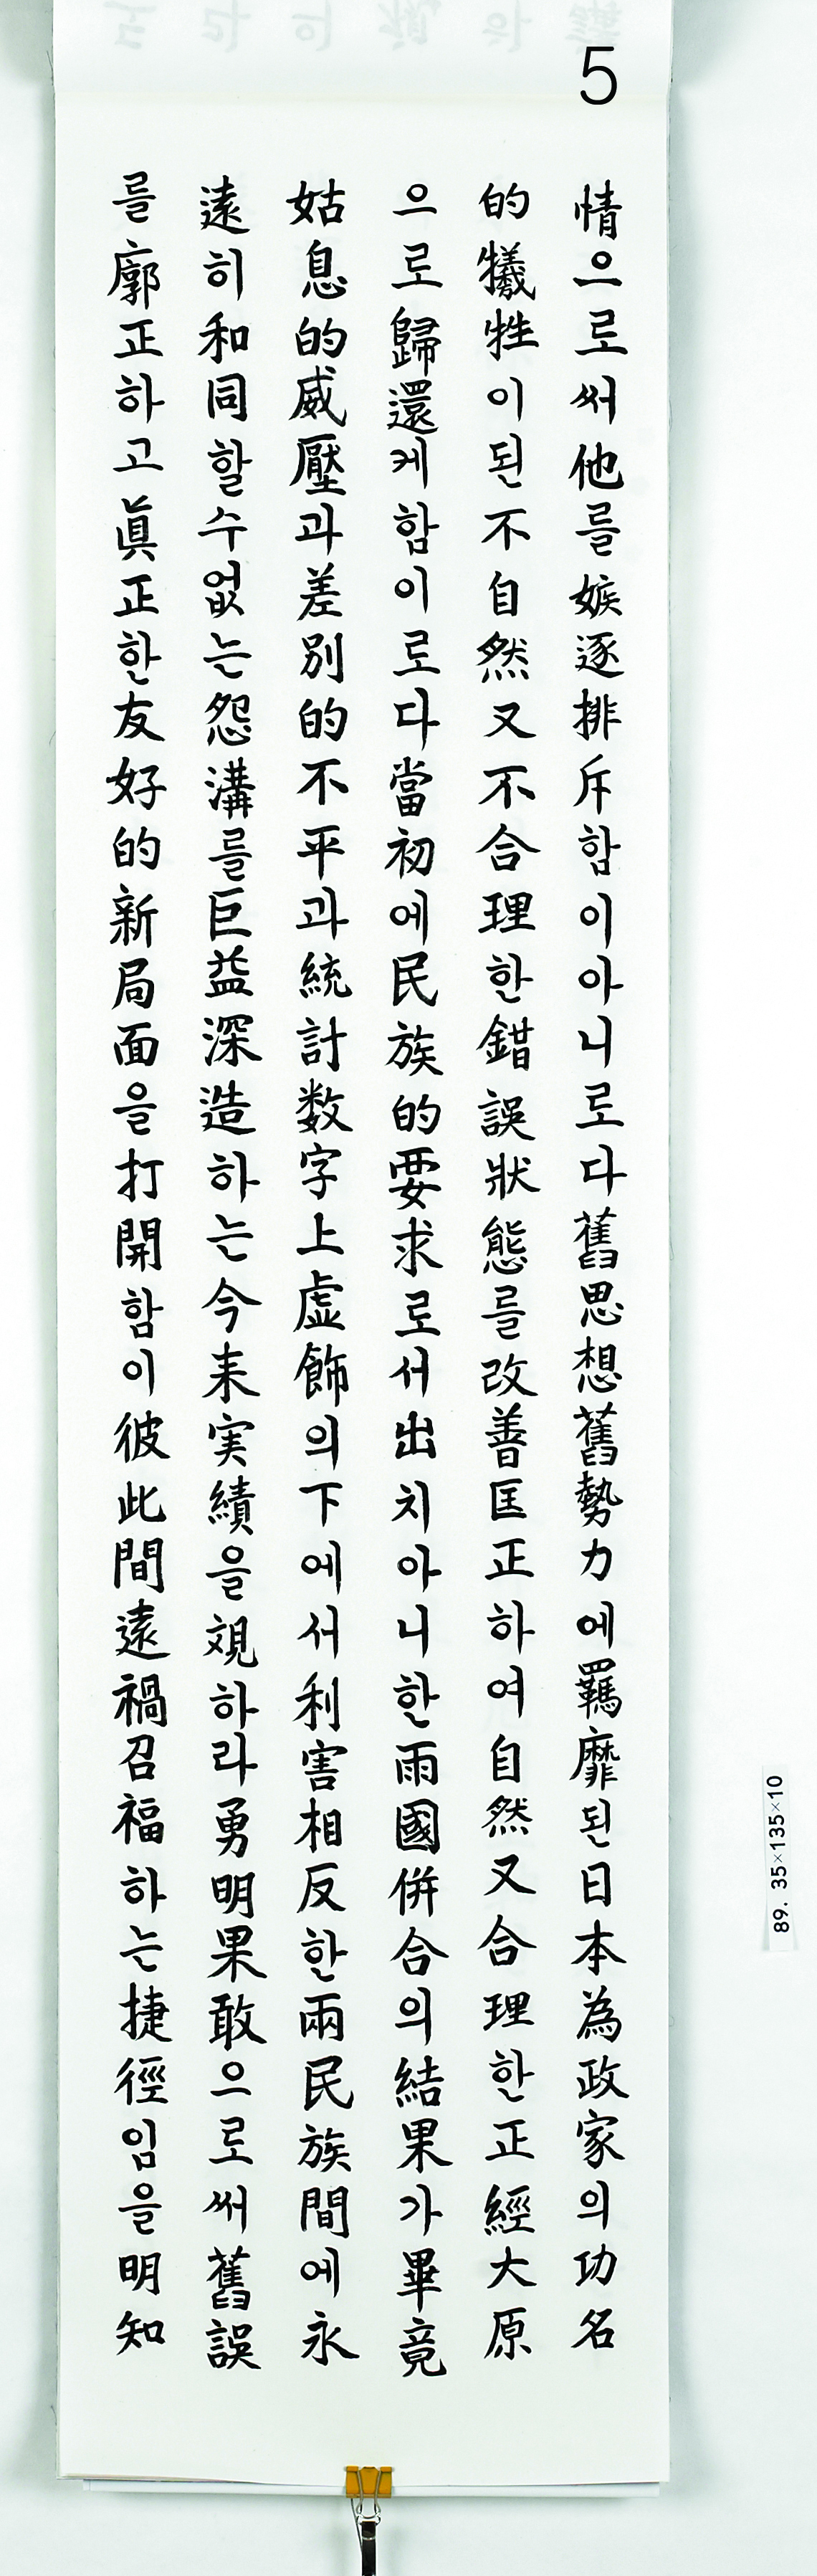 5
情으로써他를嫉逐排斥함이아니로다舊思想舊勢力에羈靡된日本為政家의功名
的犧牲이된不自然又不合理한錯誤狀態를改善匡正하여自然又合理한正經大原
으로歸還케함이로다當初에民族的要求로서出치아니한雨國併合의結果가畢竟
姑息的威壓과差別的不平과統計数字上虚飾의下에서利害相反한兩民族間에永
遠히和同할수없는怨溝를巨益深造하는今来実績을覌하라勇明果敢으로써舊誤
를廓正하고眞正한友好的新局面을打開함이彼此間遠禍召福하는捷徑임을明知
89. 35×135×10